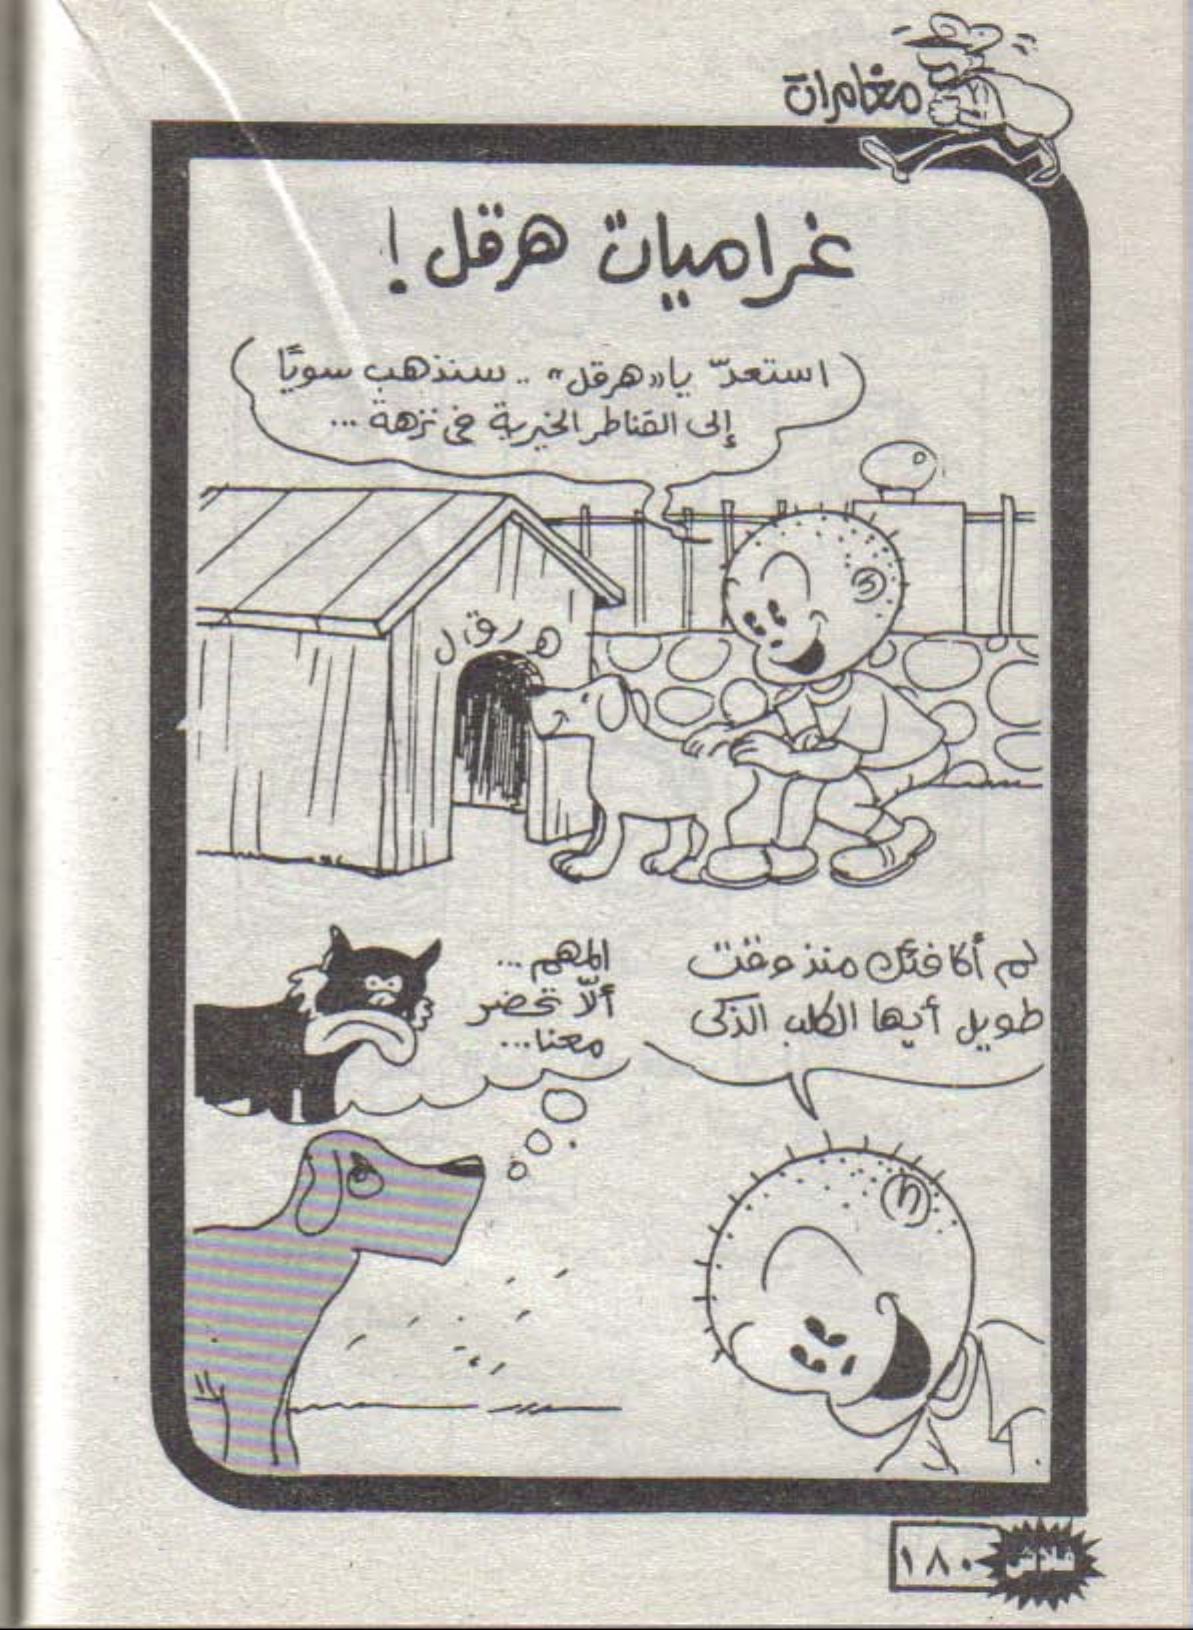 مغامرات
غراميات هرقل !
استعدّ يا «هرقل» .. سنذهب سويًا
إلى القناطر الخيرية فى نزهة ...
هرقل
لم أكافئك منذ وقت
طويل أيها الكلب الذكى
المهم ...
ألّا تحضر
معنا ...
فلاش
١٨٠